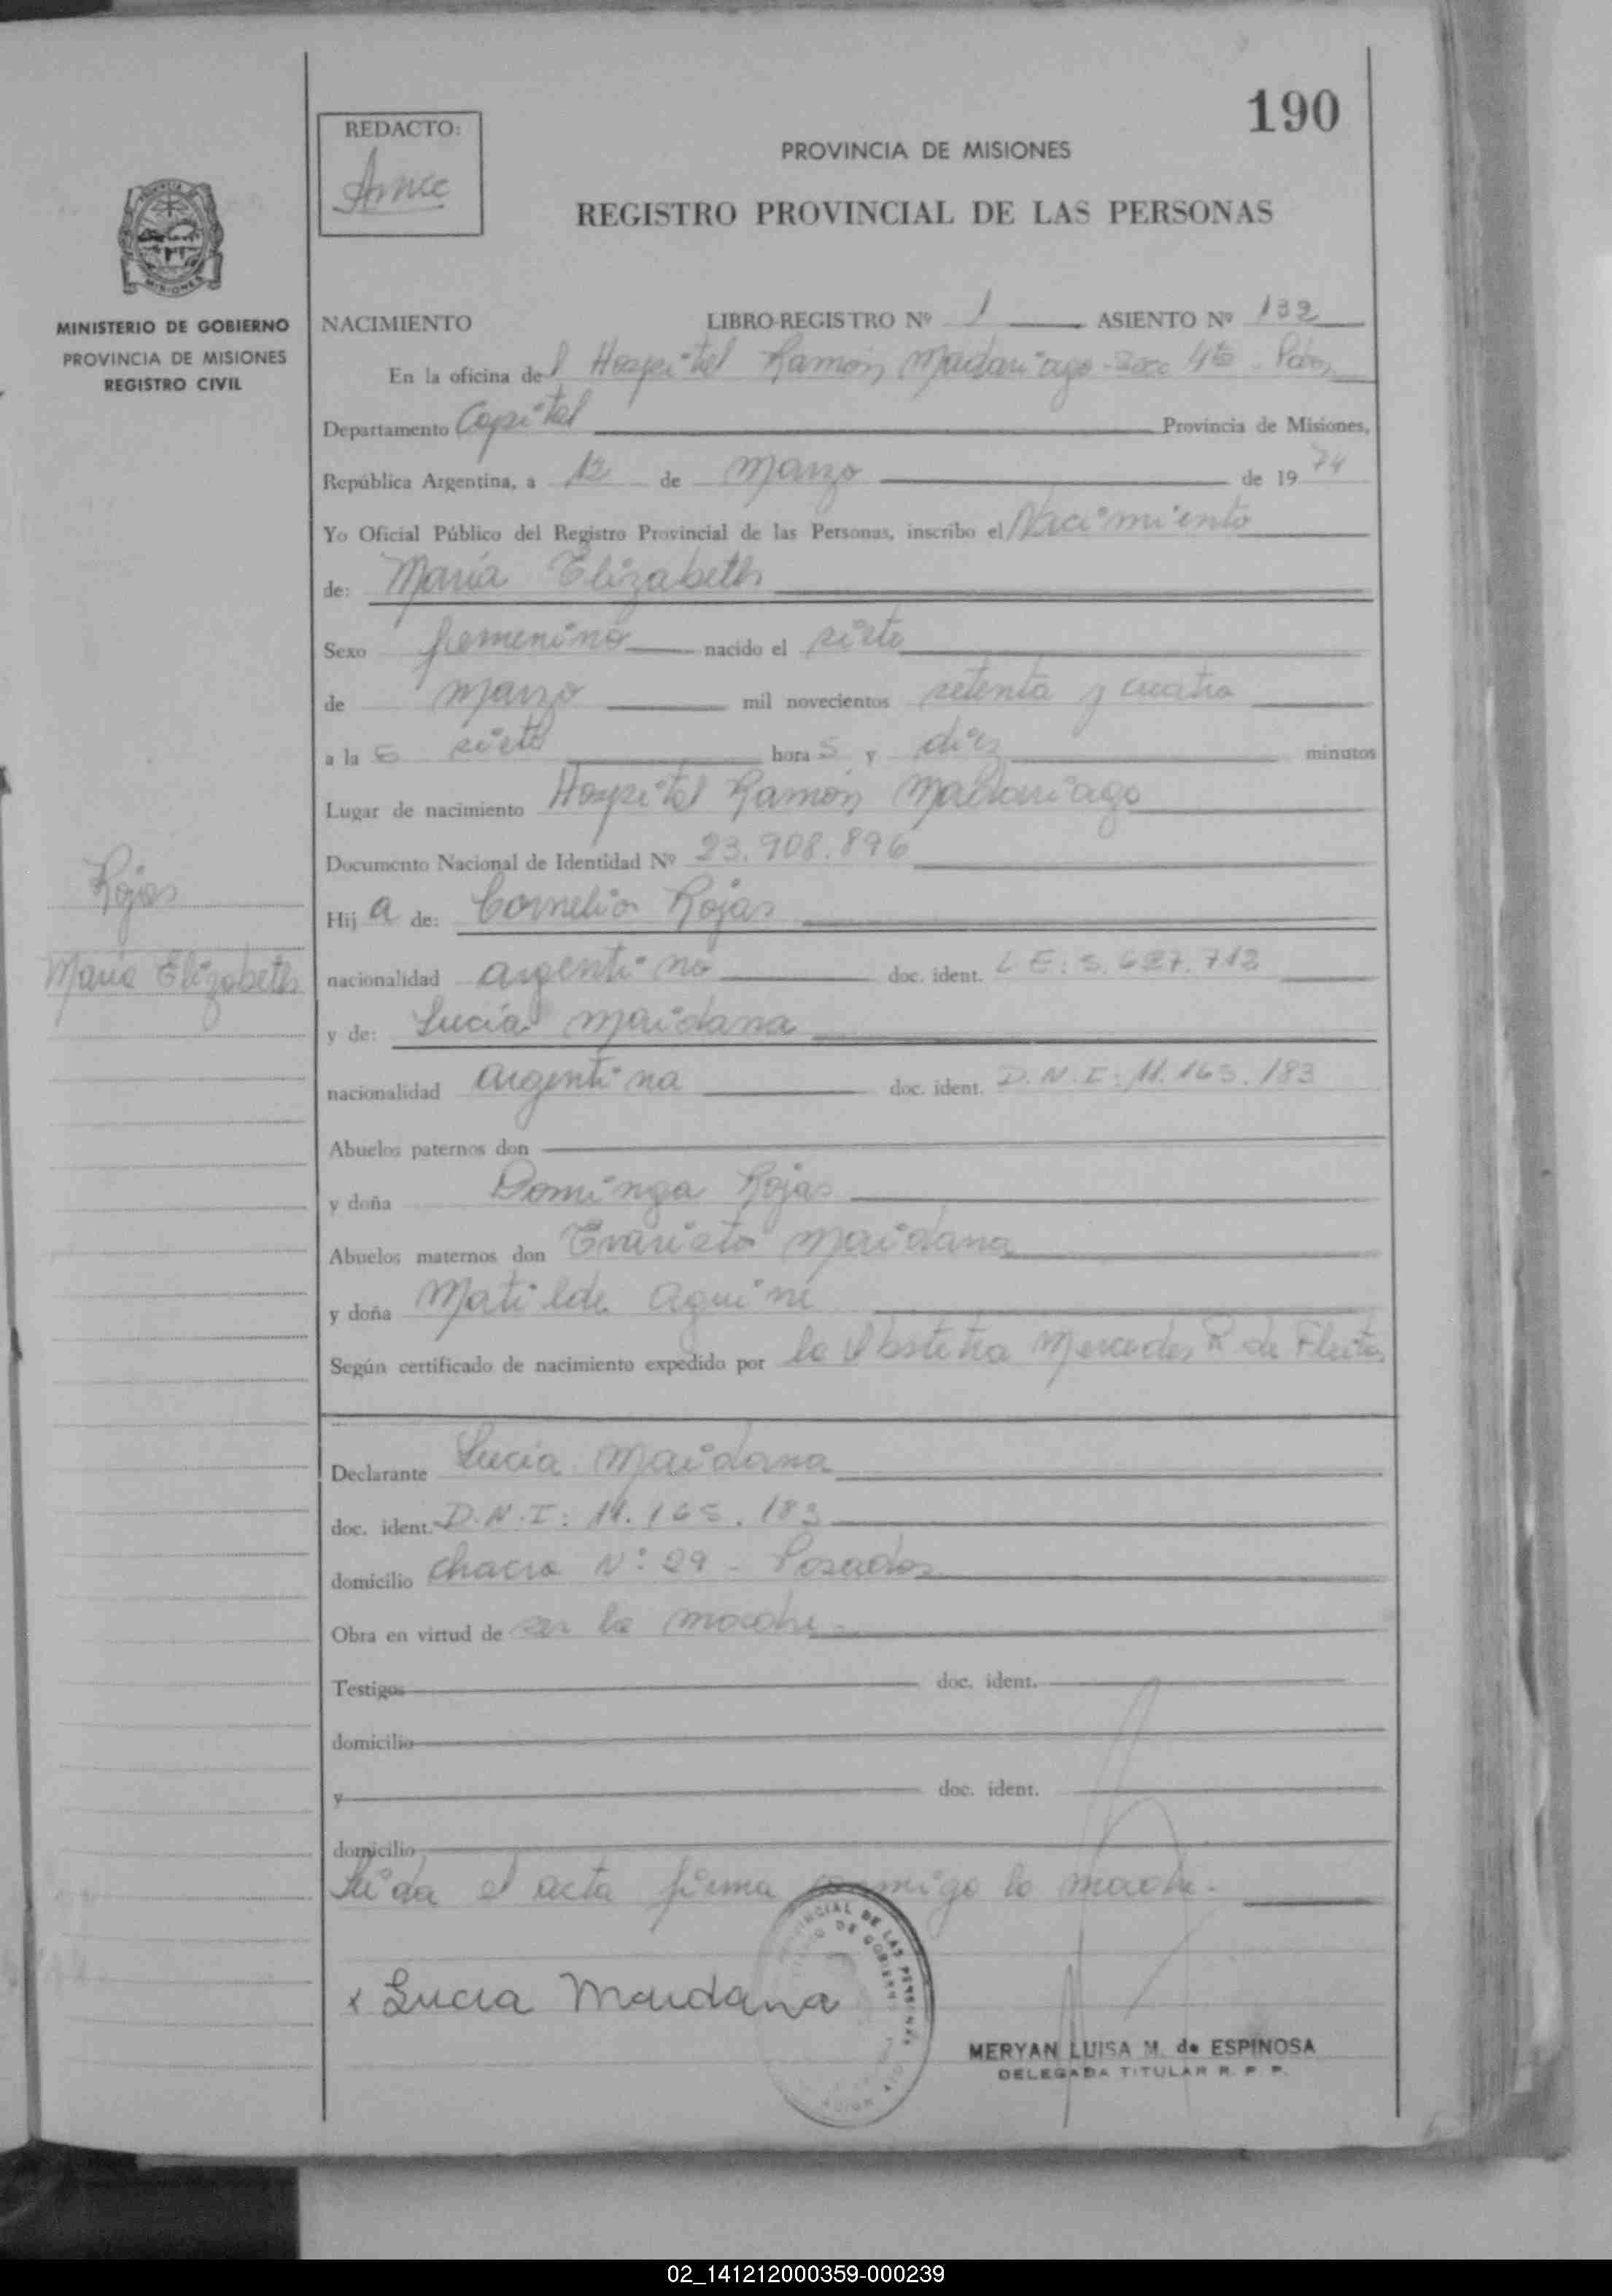 190
REDACTO:
PROVINCIA DE MISIONES
REGISTRO PROVINCIAL DE LAS PERSONAS
MISIONES
MINISTERIO DE GOBIERNO
PROVINCIA DE MISIONES
REGISTRO CIVIL
NACIMIENTO LIBRO-REGISTRO Nº 1 ASIENTO Nº 132
En la oficina del Hospital Ramón Madariaga - Secc 4ta - Pdas
Departamento Capital Provincia de Misiones,
República Argentina, a 12 de marzo de 1974
Yo Oficial Público del Registro Provincial de las Personas, inscribo el Nacimiento
de: María Elizabeth
Sexo femenino nacido el siete
de marzo mil novecientos setenta y cuatro
a la s siete hora s y diez minutos
Lugar de nacimiento Hospital Ramón Madariaga
Documento Nacional de Identidad Nº 23.908.896
Rojas
María Elizabeth
Hij a de: Cornelio Rojas
nacionalidad argentino doc. ident. L E: 5.627.712
y de: Lucía Maidana
nacionalidad argentina doc. ident. D.N.I: 11.165.183
Abuelos paternos don
y doña Dominga Rojas
Abuelos maternos don Evaristo Maidana
y doña Matilde Aquine
Según certificado de nacimiento expedido por la Obstetra Mercedes R de Fleitas
Declarante Lucía Maidana
doc. ident. D.N.I: 11.165.183
domicilio Chacra Nº: 29 - Posadas
Obra en virtud de ser la madre
Testigos doc. ident.
domicilio
y doc. ident.
domicilio
Leída el acta firma conmigo la madre.
x Lucia Maidana
MERYAN LUISA M. de ESPINOSA
DELEGADA TITULAR R. P. P.
02_141212000359-000239